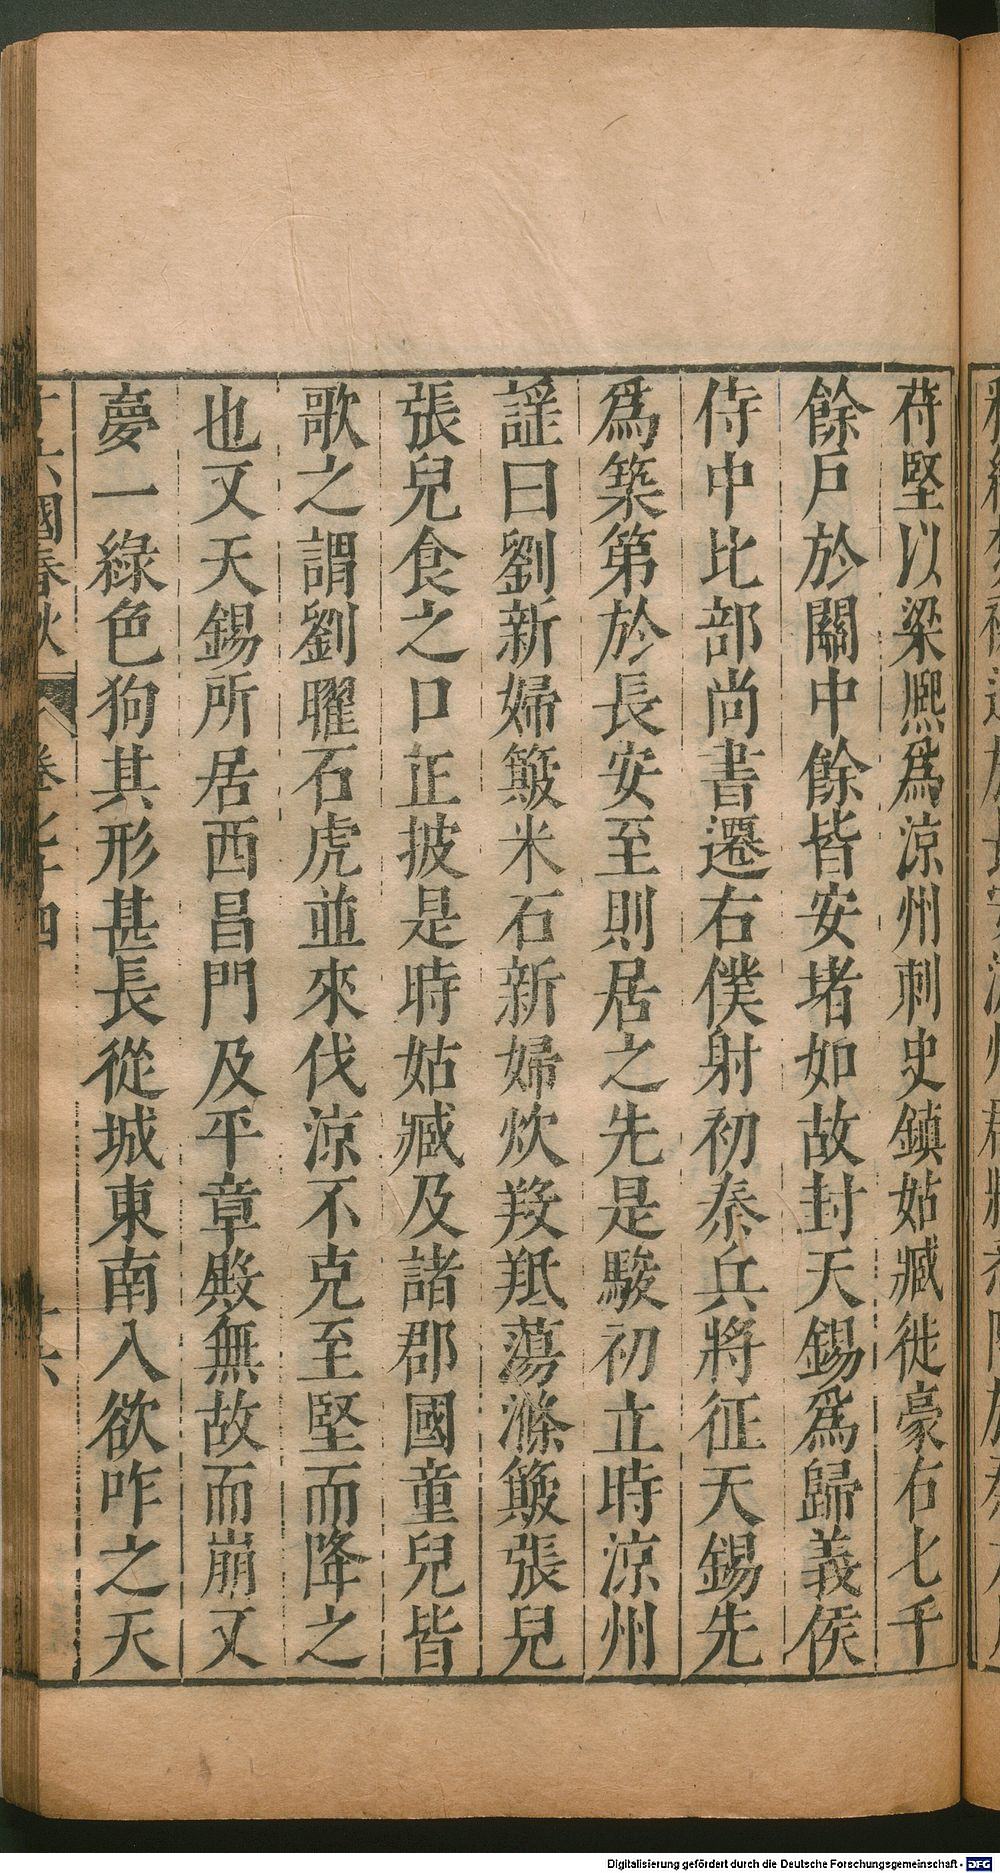 苻堅以梁熙爲涼州刺史鎮姑臧徙豪右七千
餘戶於關中餘皆安堵如故封天錫爲歸義侯
侍中比部尚書遷右僕射初秦兵將征天錫先
爲築第於長安至則居之先是駿初立時涼州
謡曰劉新婦簸米石新婦炊羖羝蕩滌簸張兒
張兒食之口正披是時姑臧及諸郡國童兒皆
歌之謂劉曜石虎並來伐涼不克至堅而降之
也又天錫所居西昌門及平章殿無故而崩又
夢一綠色狗其形甚長從城東南入欲咋之天
十六國春秋 卷七十四 十六
Digitalisierung gefördert durch die Deutsche Forschungsgemeinschaft - DFG